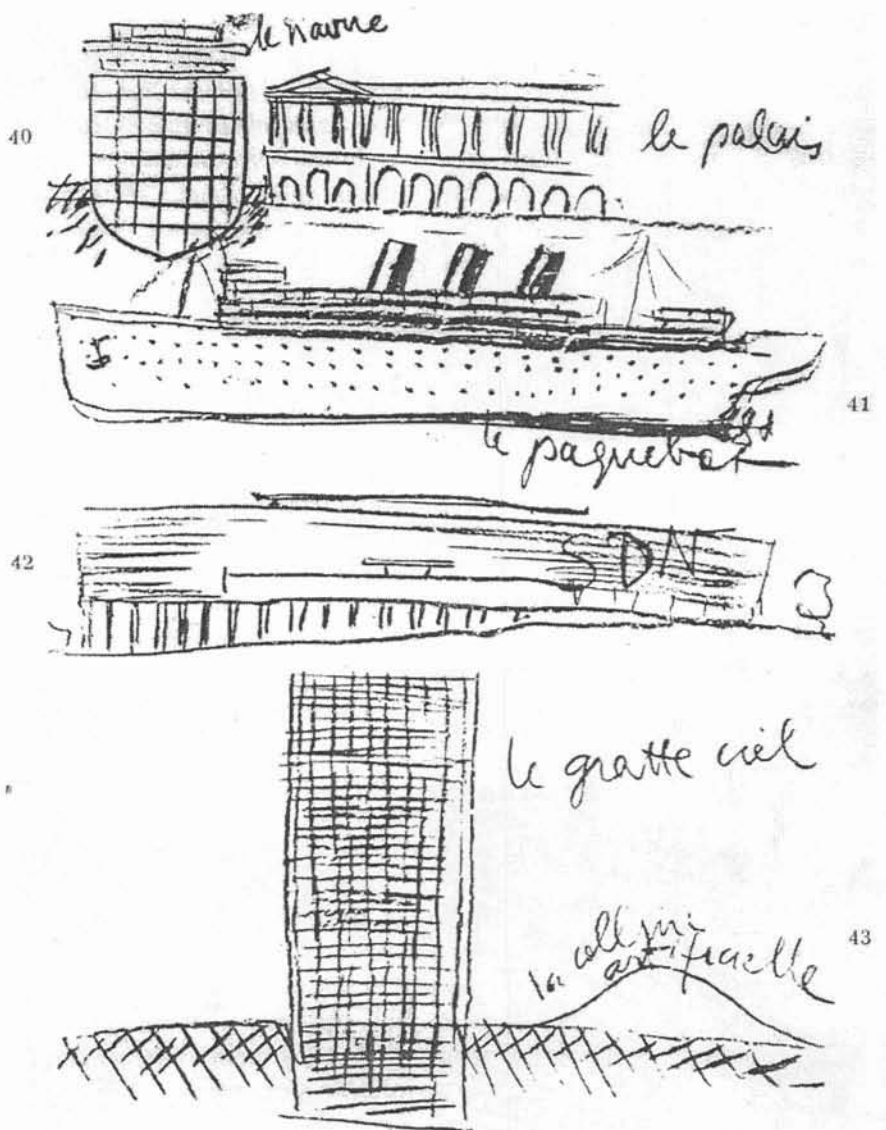 le navire
40
le palais
41
le paquebot
42
SDN
le gratte ciel
la colline
artificielle
43